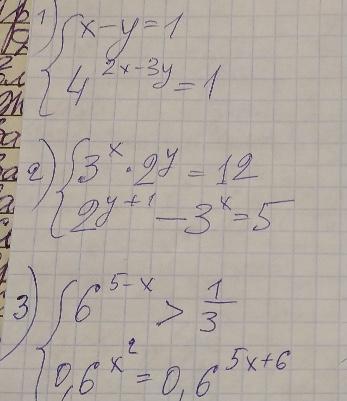 1) { x - y = 1
4^{2x-3y} = 1
2) { 3^x · 2^y = 12
2^{y+1} - 3^x = 5
3) { 6^{5-x} > \frac{1}{3}
0,6^{x^2} = 0,6^{5x+6}